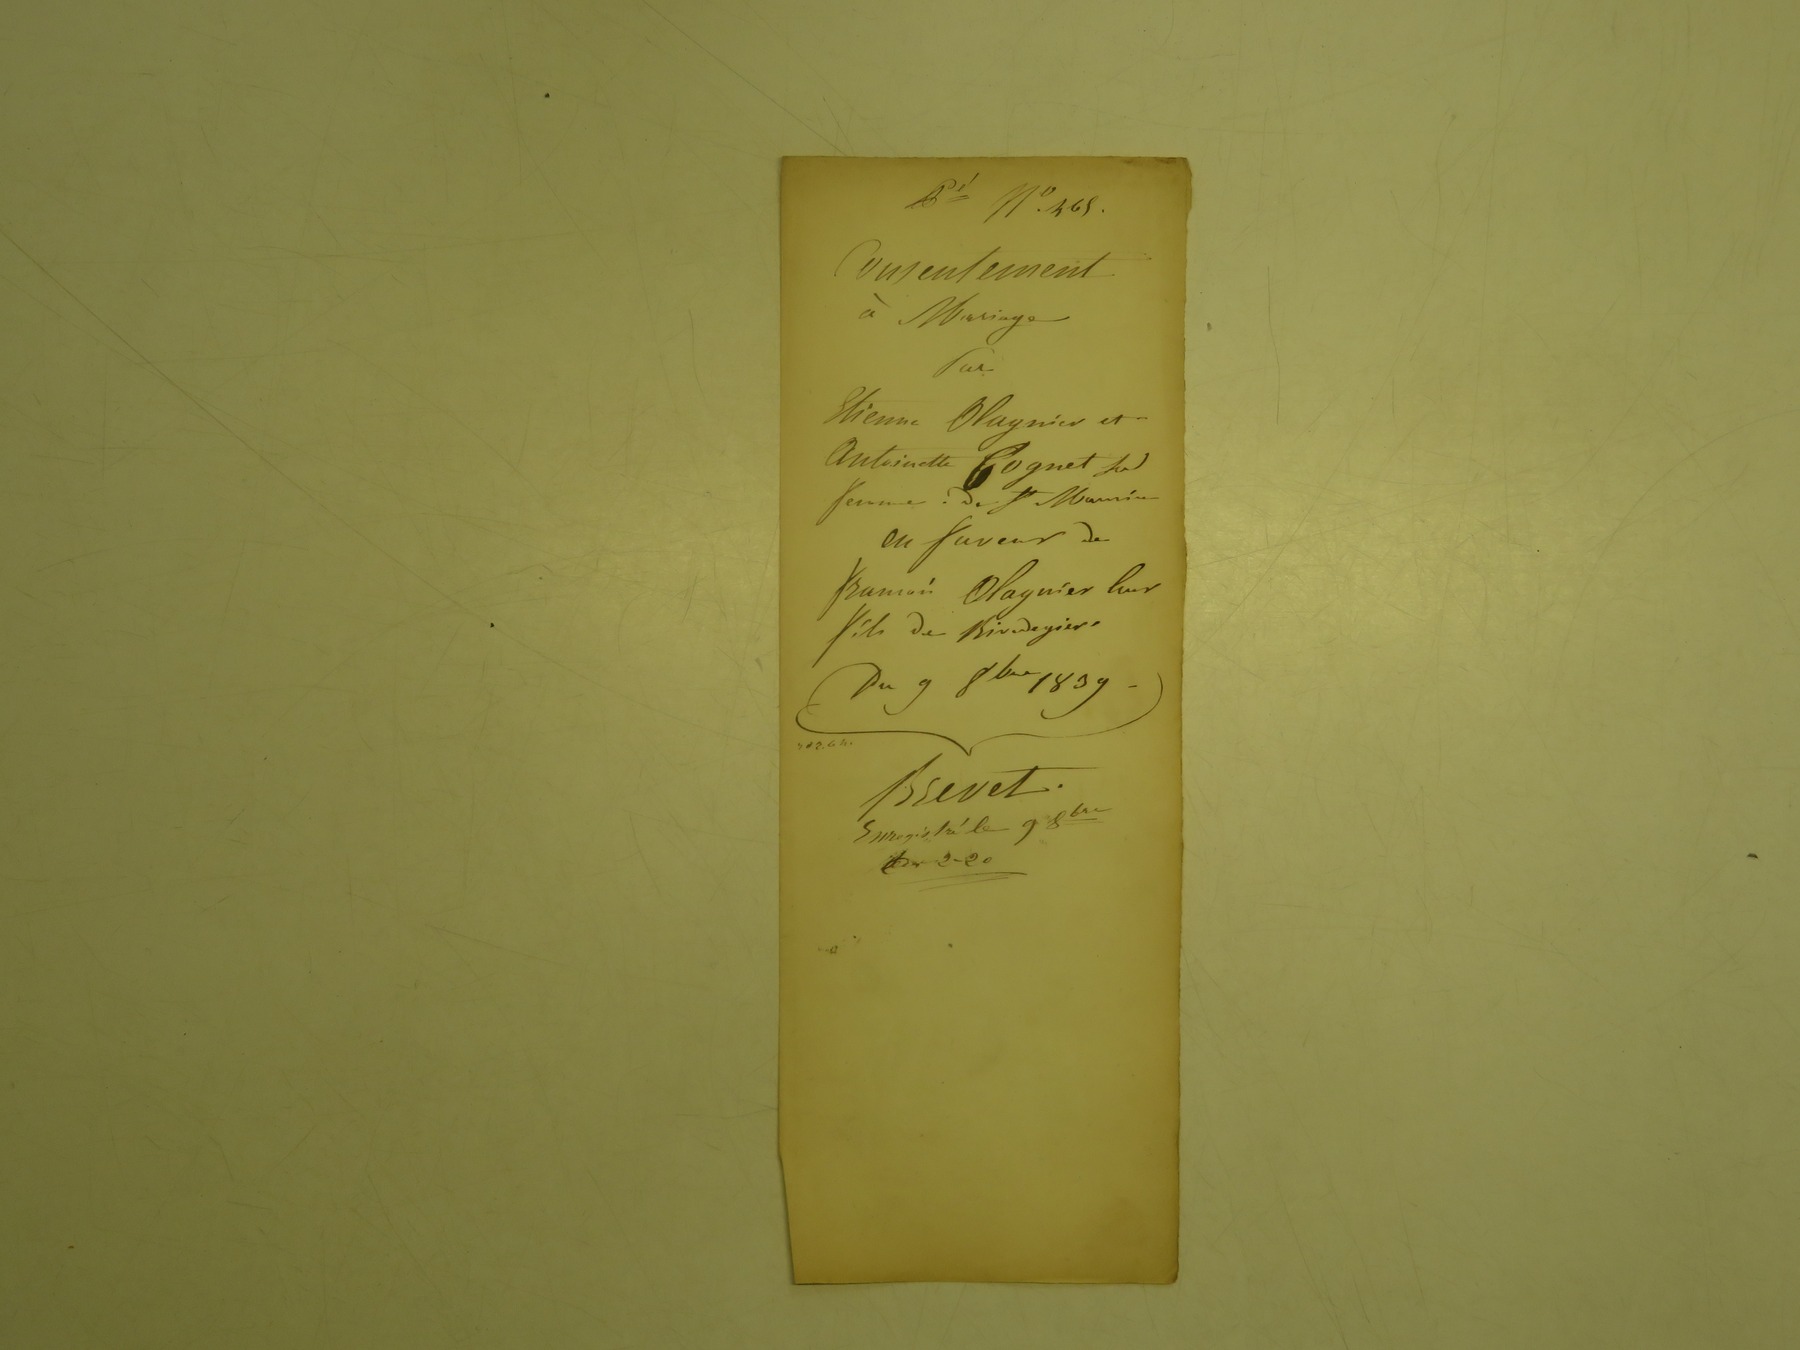 Bt N° 465.
Consentement
à Mariage
Par
Etienne Olagnier et
Antoinette Cognet sa
femme : de St Maurice
en faveur de
François Olagnier leur
fils de
Du 9 8bre 1839 -
Brevet.
Enregistré le 9 8bre
2-20